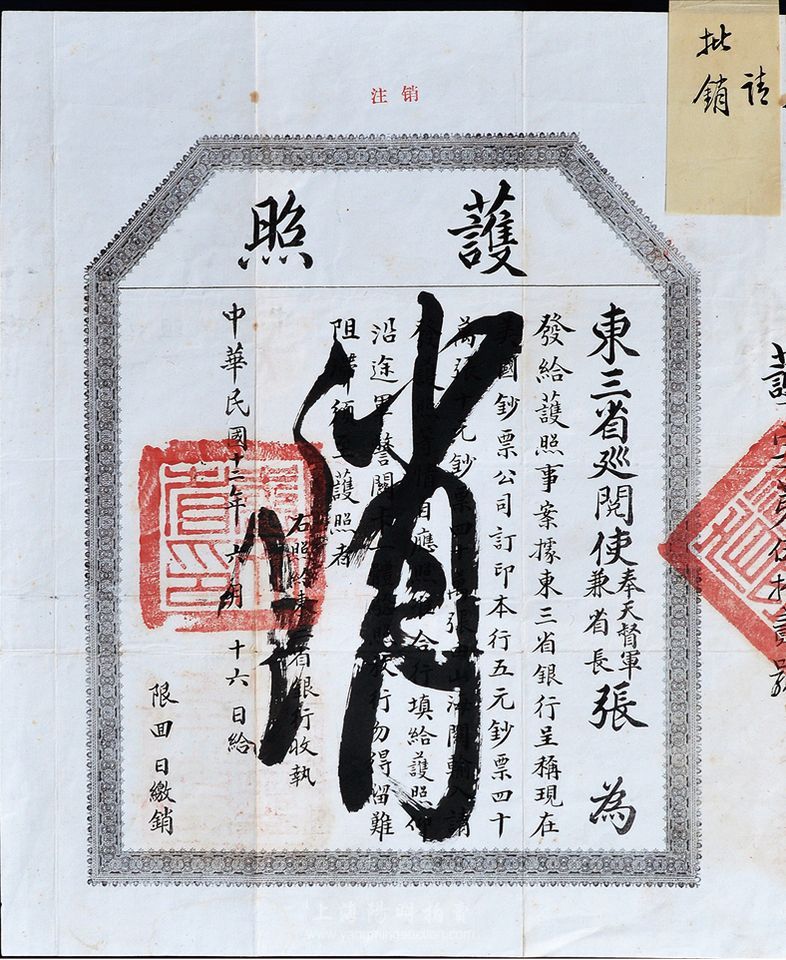 注销
请
批銷
護照
東三省巡閱使奉天督軍兼省長張為
發給護照事案據東三省銀行呈稱現在
美國鈔票公司訂印本行五元鈔票四十
萬張十元鈔票四十萬張山海關輸入請
發護照等情自應照合行填給護照仰
沿途軍警關卡一體驗照放行勿得留難
阻滯須至護照者
右照給東三省銀行收執
中華民國十二年六月十六日給
限回日繳銷
上海阳明拍卖
www.yangmingauction.com